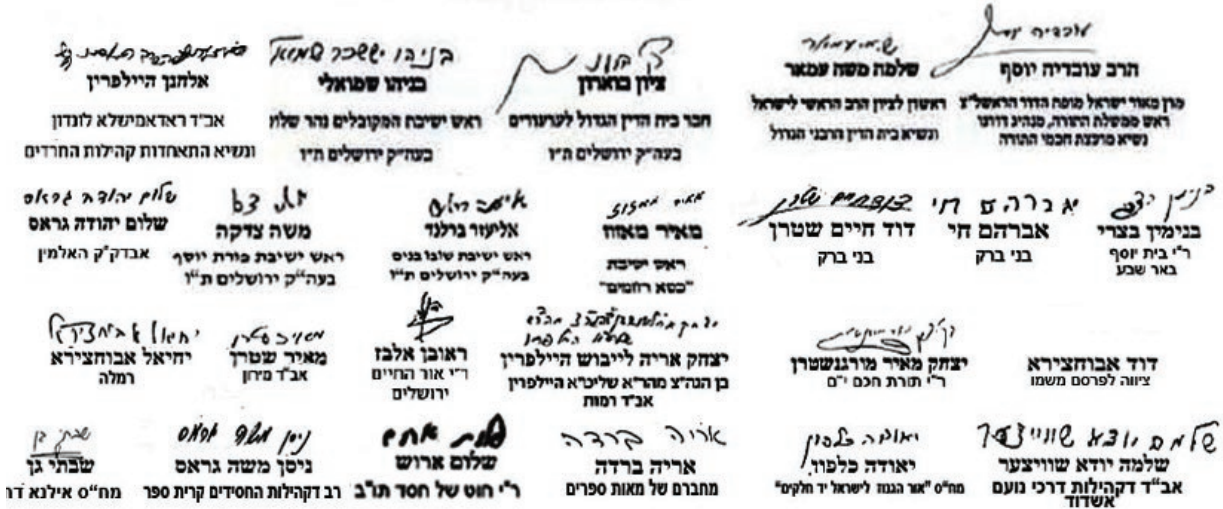 הרב עובדיה יוסף
מרן מאור ישראל מופת הדור הראשל"צ
ראש ממשלת התורה, מנהיג דורנו
נשיא מועצת חכמי התורה
שלמה משה עמאר
ראשון לציון הרב הראשי לישראל
ונשיא בית הדין הרבני הגדול
ציון בוארון
חבר בית הדין הגדול לערעורים
בעה"ק ירושלים ת"ו
בניהו יששכר שמואלי
בניהו שמואלי
ראש ישיבת המקובלים נהר שלום
בעה"ק ירושלים ת"ו
אלחנן היילפרין
אב"ד ראדאמישלא לונדון
ונשיא התאחדות קהילות החרדים
בנימין בצרי
ר"י בית יוסף
באר שבע
אברהם חי
אברהם חי
בני ברק
דוד חיים שטרן
דוד חיים שטרן
בני ברק
מאיר מאזוז
מאיר מאזוז
ראש ישיבת
"כסא רחמים"
אליעזר ברלנד
ראש ישיבת שובו בנים
בעה"ק ירושלים ת"ו
משה צדקה
ראש ישיבת פורת יוסף
בעה"ק ירושלים ת"ו
שלום יהודה גראס
שלום יהודה גראס
אבדק"ק האלמין
דוד אבוחצירא
ציווה לפרסם משמו
יצחק מאיר מורגנשטרן
ר"י תורת חכם י"ם
יצחק אריה לייבוש היילפרין
בן הגה"צ מהר"א שליט"א היילפרין
אב"ד רמות
ראובן אלבז
ר"י אור החיים
ירושלים
מאיר שטרן
אב"ד מירון
יחיאל אבוחצירא
יחיאל אבוחצירא
רמלה
שלמה יודא שווייצער
שלמה יודא שוויצער
אב"ד דקהילות דרכי נועם
אשדוד
יאודה כלפון
יאודה כלפון
מח"ס "אור הגנוז לישראל יד חלקים"
אריה ברדה
אריה ברדה
מחברם של מאות ספרים
שלום ארוש
ר"י חוט של חסד תו"ב
ניסן משה גראס
ניסן משה גראס
רב דקהילות החסידים קרית ספר
שבתי גן
מח"ס אילנא